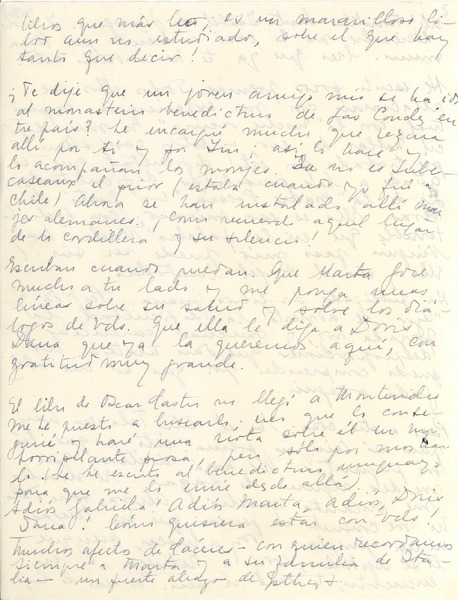 libros que más leo, es un maravilloso li-
bro aun no estudiado, sobre el que hay
tanto que decir!
¿Te dije que un joven amigo mio se ha ido
al monasterio benedictino de Las Condes en
tu país? Le encargué mucho que rogara
allí por ti y por Luis; así lo hace y
lo acompañan los monjes. Ya no es Suber-
caseaux el prior (estaba cuando yo fuí a
Chile) Ahora se han instalado allí mon-
jes alemanes. ¡Cómo recuerdo aquel lugar
de la cordillera y su silencio!
Escriban cuando puedan. Que Marta goce
mucho a tu lado y me ponga unas
líneas sobre su salud y sobre los diá-
logos de Vds. Que ella le diga a Doris
Dana que ya la queremos aquí, con
gratitud muy grande.
El libro de Oscar Castro no llegó a Montevideo
me he puesto a buscarlo, veo que lo conse-
guiré y haré una nota sobre él en mi
horripilante prosa, pero sólo por mos
lo he escrito al benedictino uruguayo
para que me lo envíe desde allá.
Adiós Gabriela! Adiós Marta, adiós, Doris
Dana! Cómo quisiera estar con Vds!
Muchos afectos de Cáceres – con quien recordamos
siempre a Marta y a su familia de Ita-
lia – un fuerte abrazo de Esther